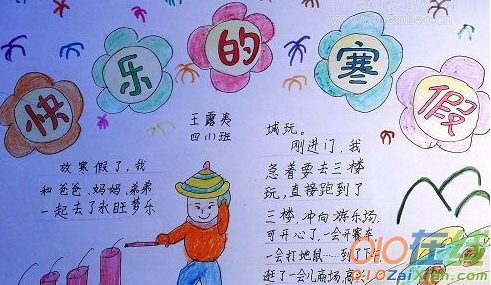 快乐的寒假
王露英
四(1)班
放寒假了,我
和爸爸、妈妈,弟弟
一起去了永旺梦乐
城玩。
刚进门,我
急着要去三楼
玩,直接跑到了
三楼,冲向游乐场,
可开心了,一会开赛车
一会打地鼠……到了下午
逛了一会儿商场,
010在线
010ZaiXian.com